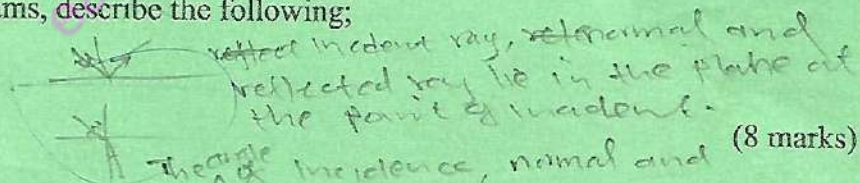 ms, describe the following;
incedent ray, normal and
reflected ray lie in the plane at
the point of incident.
(8 marks)
The angle of incidence, normal and